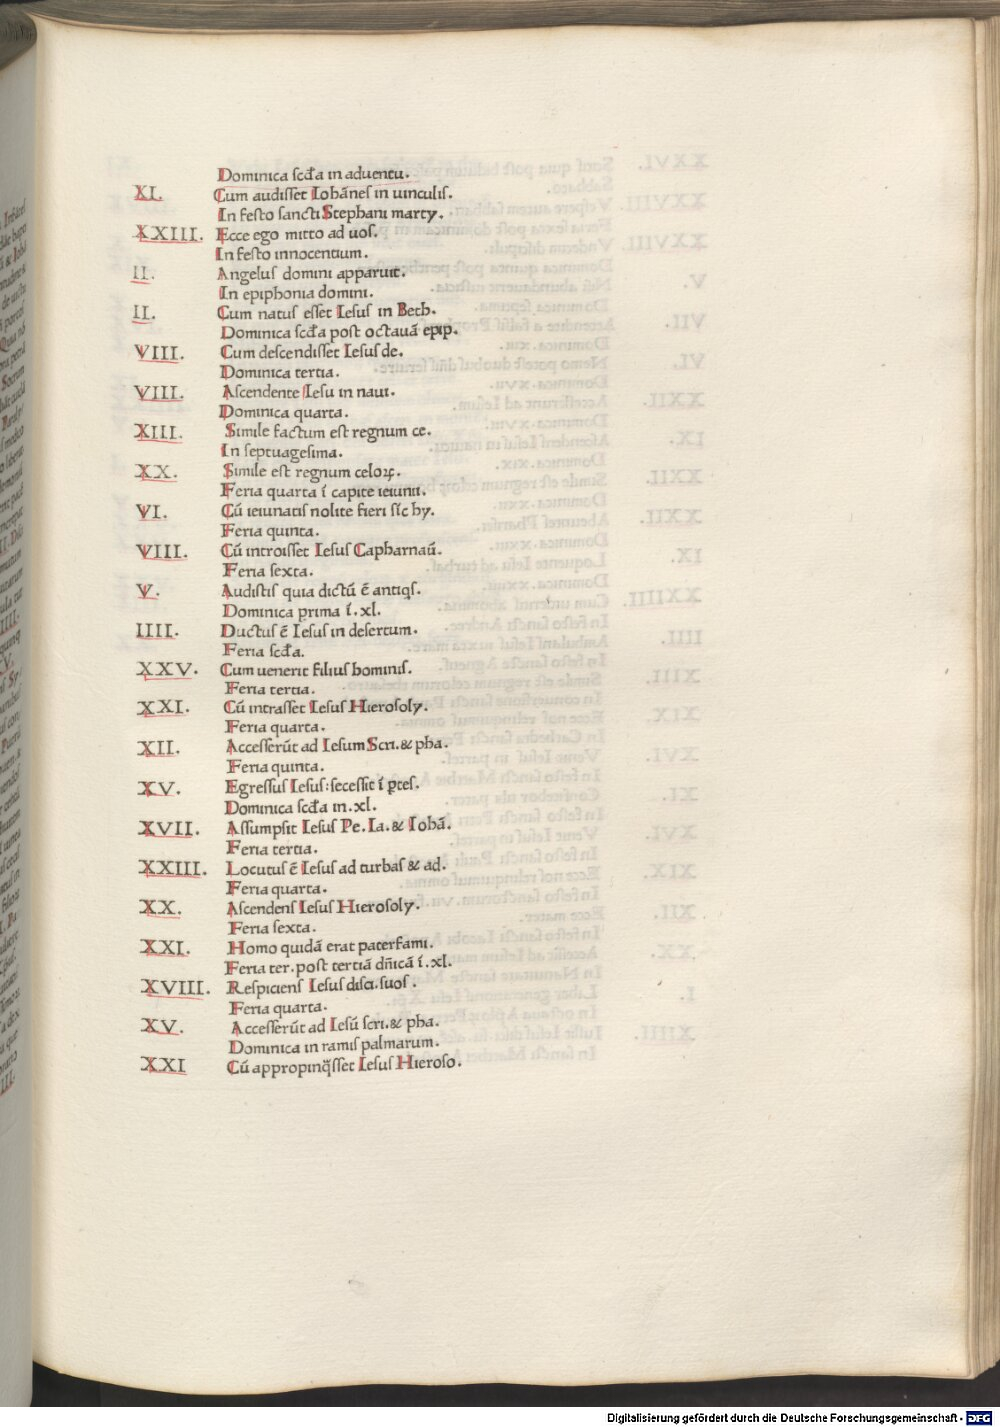 Dominica scďa in aduentu.
XI. Cum audisset Iohānes in uinculis.
In festo sancti Stephani marty.
XXIII. Ecce ego mitto ad uos.
In festo innocentium.
II. Angelus domini apparuit.
In epiphonia domini.
II. Cum natus esset Iesus in Beth.
Dominica scďa post octauā epip.
VIII. Cum descendisset Iesus de.
Dominica tertia.
VIII. Ascendente Iesu in naui.
Dominica quarta.
XIII. Simile factum est regnum ce.
In septuagesima.
XX. Simile est regnum celoꝝ.
Feria quarta ī capite ieiunii.
VI. Cū ieiunatis nolite fieri sic hy.
Feria quinta.
VIII. Cū introisset Iesus Capharnaū.
Feria sexta.
V. Audistis quia dictū ē antiqs.
Dominica prima ī.xl.
IIII. Ductus ē Iesus in desertum.
Feria scďa.
XXV. Cum uenerit filius hominis.
Feria tertia.
XXI. Cū intrasset Iesus Hierosoly.
Feria quarta.
XII. Accesserūt ad Iesum Scri.& pha.
Feria quinta.
XV. Egressus Iesus:secessit ī ꝑtes.
Dominica scďa in.xl.
XVII. Assumpsit Iesus Pe.Ia.& Iohā.
Feria tertia.
XXIII. Locutus ē Iesus ad turbas & ad.
Feria quarta.
XX. Ascendens Iesus Hierosoly.
Feria sexta.
XXI. Homo quidā erat paterfami.
Feria ter.post tertiā dñicā ī.xl.
XVIII. Respiciens Iesus disci.suos.
Feria quarta.
XV. Accesserūt ad Iesū scri.& pha.
Dominica in ramis palmarum.
XXI Cū appropinq̄sset Iesus Hieroso.
Digitalisierung gefördert durch die Deutsche Forschungsgemeinschaft - DFG